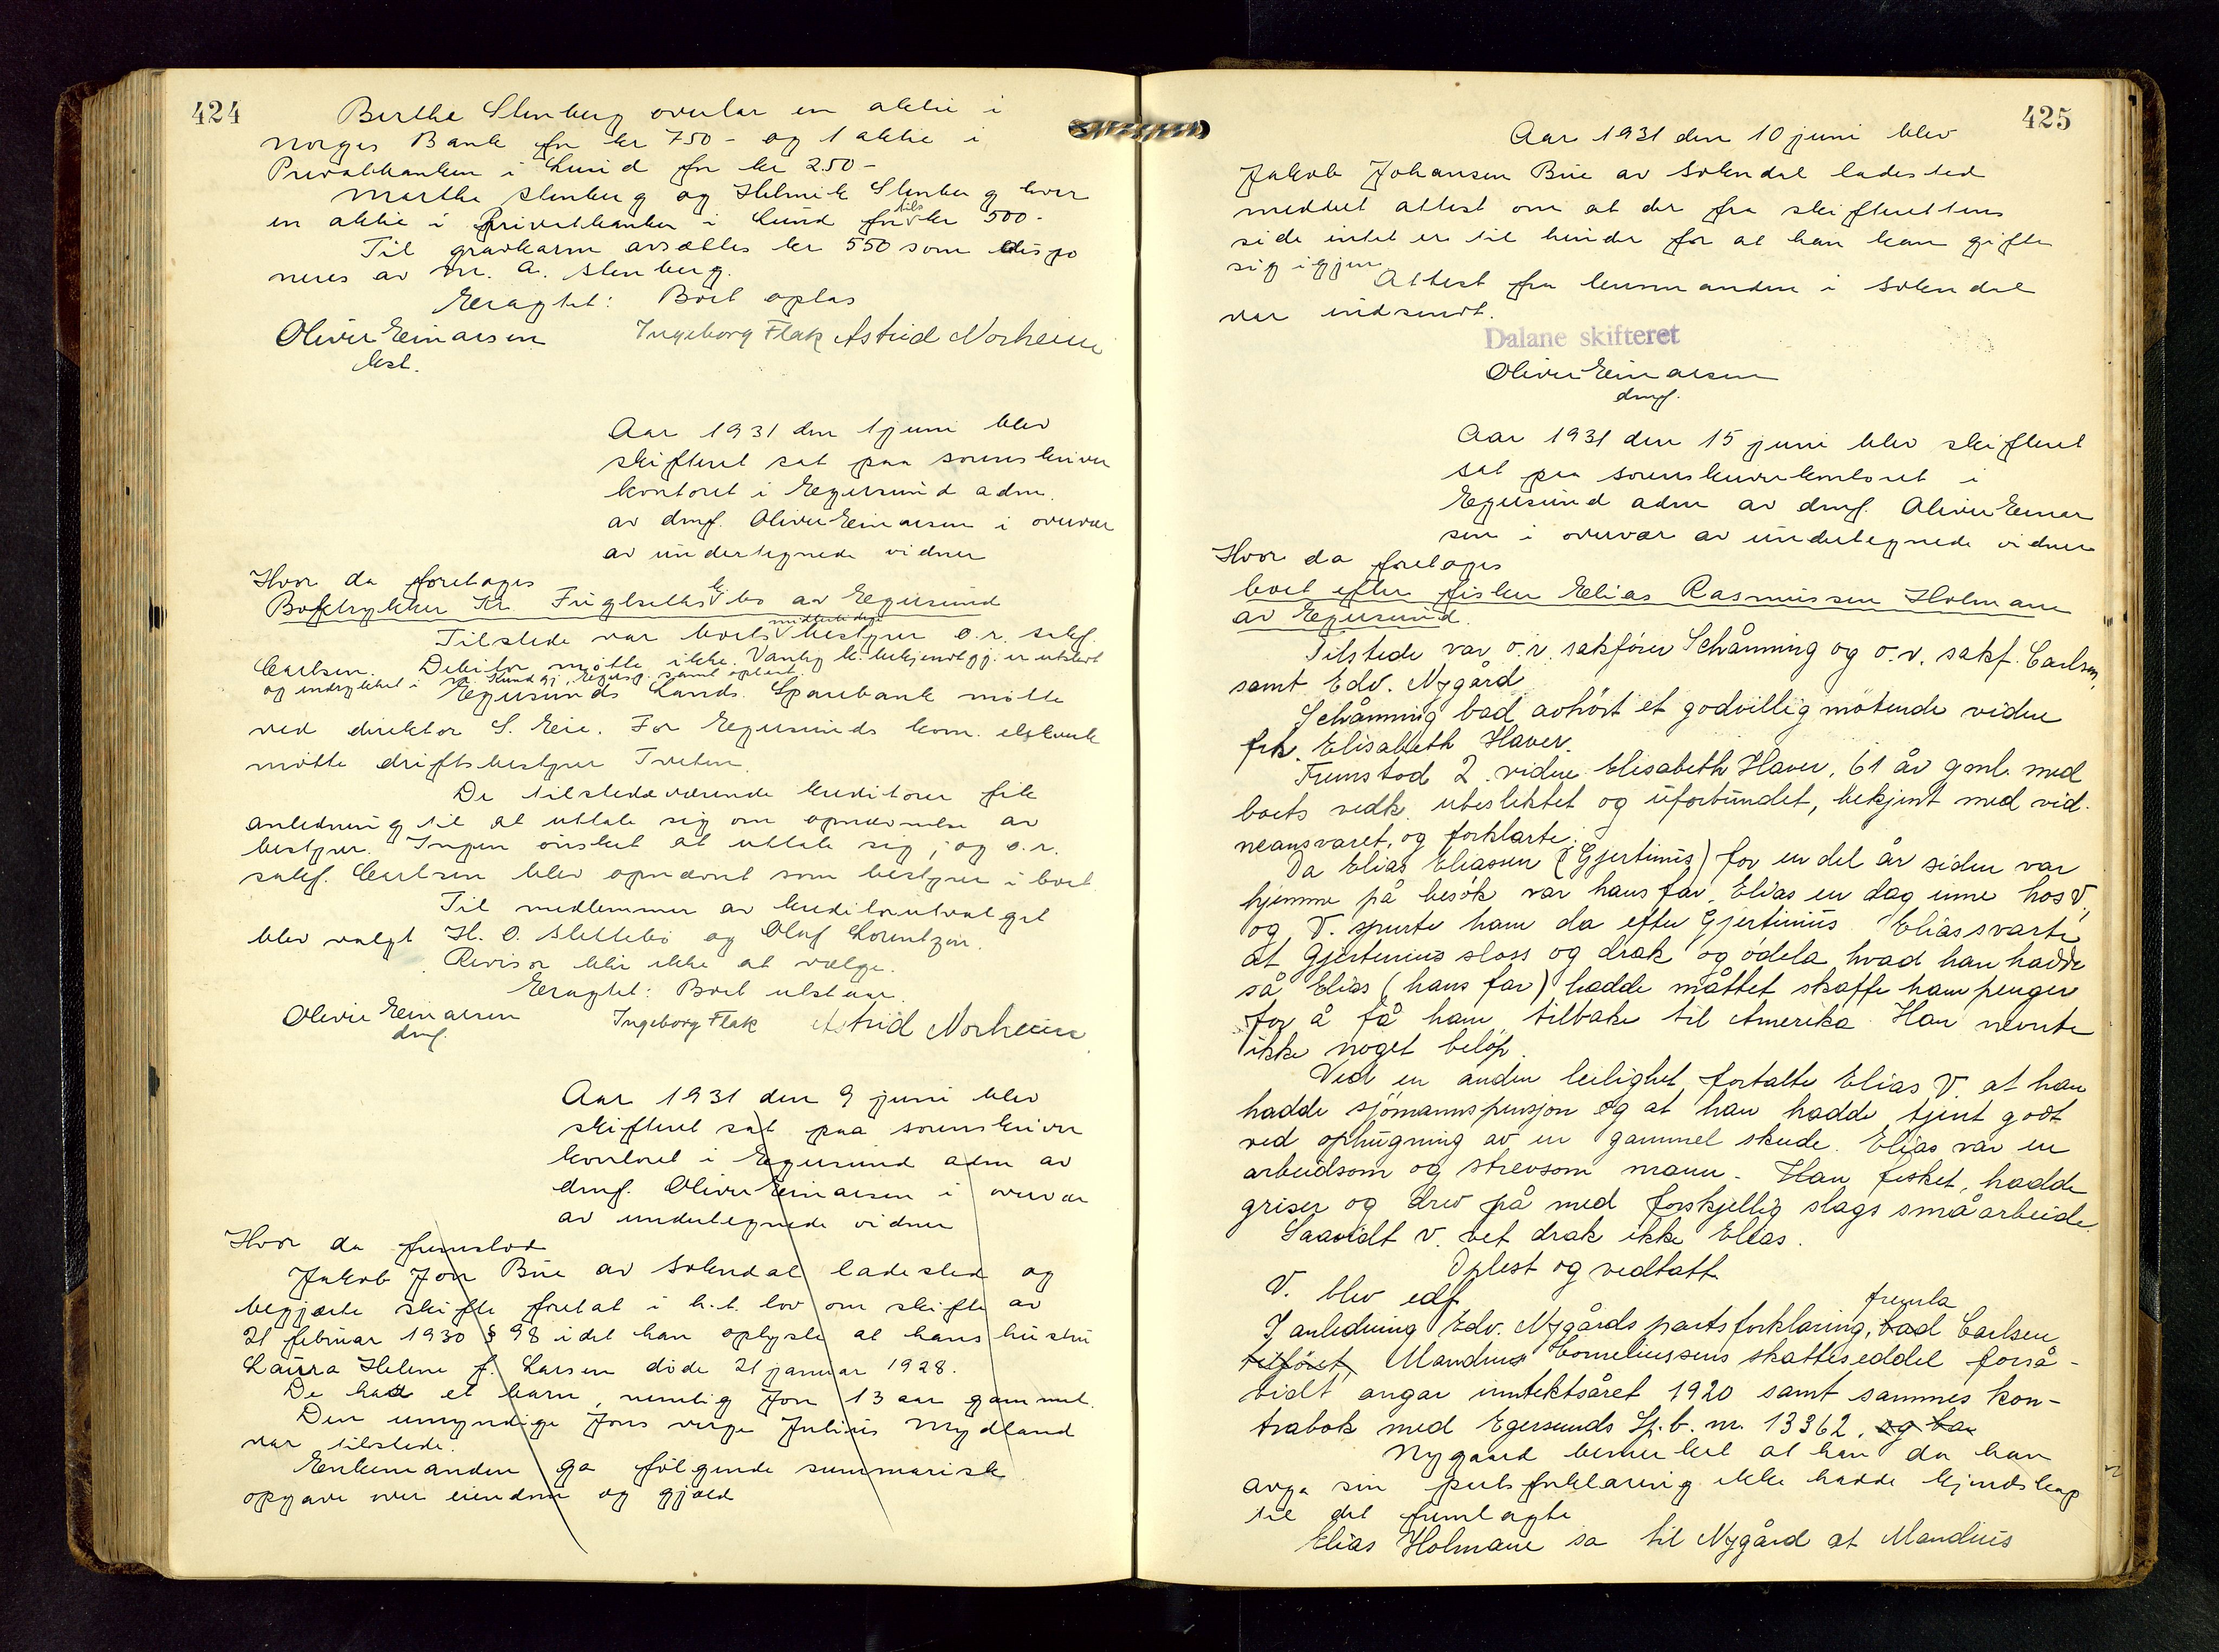 424
Berthe Stenberg overtar en aktie i
Norges Bank for kr 750 - og 1 aktie i
Privatbanken i Lund for kr 250 -
Marthe Stenberg og Helmik Stenberg hver
en aktie i Privatbanken i Lund for tils kr 500 -
Til gravkarm avsættes kr 550 som dispo
neres av M. A. Stenberg.
Eragtet: Boet opløs
Oliver Einarsen Ingeborg Flak Astrid Norheim
kst.
Aar 1931 den 1 juni blev
skifteret sat paa sorenskriver
kontoret i Egersund adm.
av dmf. Oliver Einarsen i overvær
av undertegnede vidner
Hvor da foretoges
Boktrykker Kr. Fuglseths k.bo av Egersund
Tilstede var boets midlertidige bestyrer o.r. sakf.
Carlsen. Debitor møtte ikke. Vanlig k. bekjendtgj. er utstedt
og indrykket i N. Kundgj., Egersp. samt oplæst
Egersunds Lands. Sparebank møtte
ved direktør S. Eie. For Egersunds kom. elektverk
møtte driftsbestyrer Tveten.
De tilstedeværende kreditorer fik
anledning til at uttale sig om opnævnelse av
bestyrer. Ingen ønsket at uttale sig, og o.r.
sakf. Carlsen blev opnævnt som bestyrer i boet.
Til medlemmer av kreditorutvalget
blev valgt H. O. Slettebø og Oluf Lorentzen.
Revisor blir ikke at vælge.
Eragtet: Boet utstaar.
Oliver Einarsen Ingeborg Flak Astrid Norheim
dmf.
Aar 1931 den 9 juni blev
skifteret sat paa sorenskriver
kontoret i Egersund adm av
dmf. Oliver Einarsen i overvær
av undertegnede vidner
Hvor da fremstod
Jakob Jon Bue av Sokndal ladested og
begjærte skifte foretat i h.t. lov om skifte av
21 februar 1930 § 98 idet han oplyste at hans hustru
Laura Helene f. Larsen døde 21 januar 1928.
De had et barn, nemlig Jon 13 aar gammel.
Den umyndige Jons verge Julius Mydland
var tilstede.
Enkemanden ga følgende summarisk
opgave over eiendom og gjæld
425
Aar 1931 den 10 juni blev
Jakob Johansen Bue av Sokndal ladested
meddelt attest om at der fra skifterettens
side intet er til hinder for at han kan gifte
sig igjen
Attest fra lensmanden i Sokndal
var indsendt.
Dalane skifteret
Oliver Einarsen
dmf.
Aar 1931 den 15 juni blev skifteret
sat paa sorenskriverkontoret i
Egersund adm av dmf. Oliver Einar
sen i overvær av undertegnede vidner
Hvor da foretoges
boet efter fisker Elias Rasmussen Holmane
av Egersund.
Tilstede var o.r. sakfører Schånning og o.r. sakf. Carlsen,
samt Edv. Nygård.
Schånning bad avhørt et godvillig møtende vidne
frk. Elisabeth Haver.
Fremstod 2. vidne Elisabeth Haver, 61 år gml. med
boets vedk. ubeslektet og uforbundet, bekjent med vid-
neansvaret, og forklarte:
Da Elias Eliassen (Gjertinius) for en del år siden var
hjemme på besøk var hans far, Elias en dag inne hos V.,
og V. spurte ham da efter Gjertinius. Elias svarte
at Gjertinius sloss og drak og ødela hvad han hadde
så Elias (hans far) hadde måttet skaffe ham penger
for å få ham tilbake til Amerika. Han nevnte
ikke noget beløp.
Ved en anden leilighet fortalte Elias V. at han
hadde sjømannspensjon og at han hadde tjent godt
ved ophugning av en gammel skude. Elias var en
arbeidsom og strevsom mann. Han fisket, hadde
griser og drev på med forskjellig slags småarbeide
Saavidt v. vet drak ikke Elias.
Oplest og vedtatt.
V. blev edf.
fremla
I anledning Edv. Nygårds partsforklaring, bad Carlsen
tilføiet, Mandius Corneliussens skatteseddel forså-
vidt angar inntektsåret 1920 samt sammes kon-
trabok med Egersunds Sp.b. nr. 13362, og ba
Nygaard bemerket at han da han
avga sin partsforklaring ikke hadde kjendskap
til det fremlagte
Elias Holmane sa til Nygård at Mandius